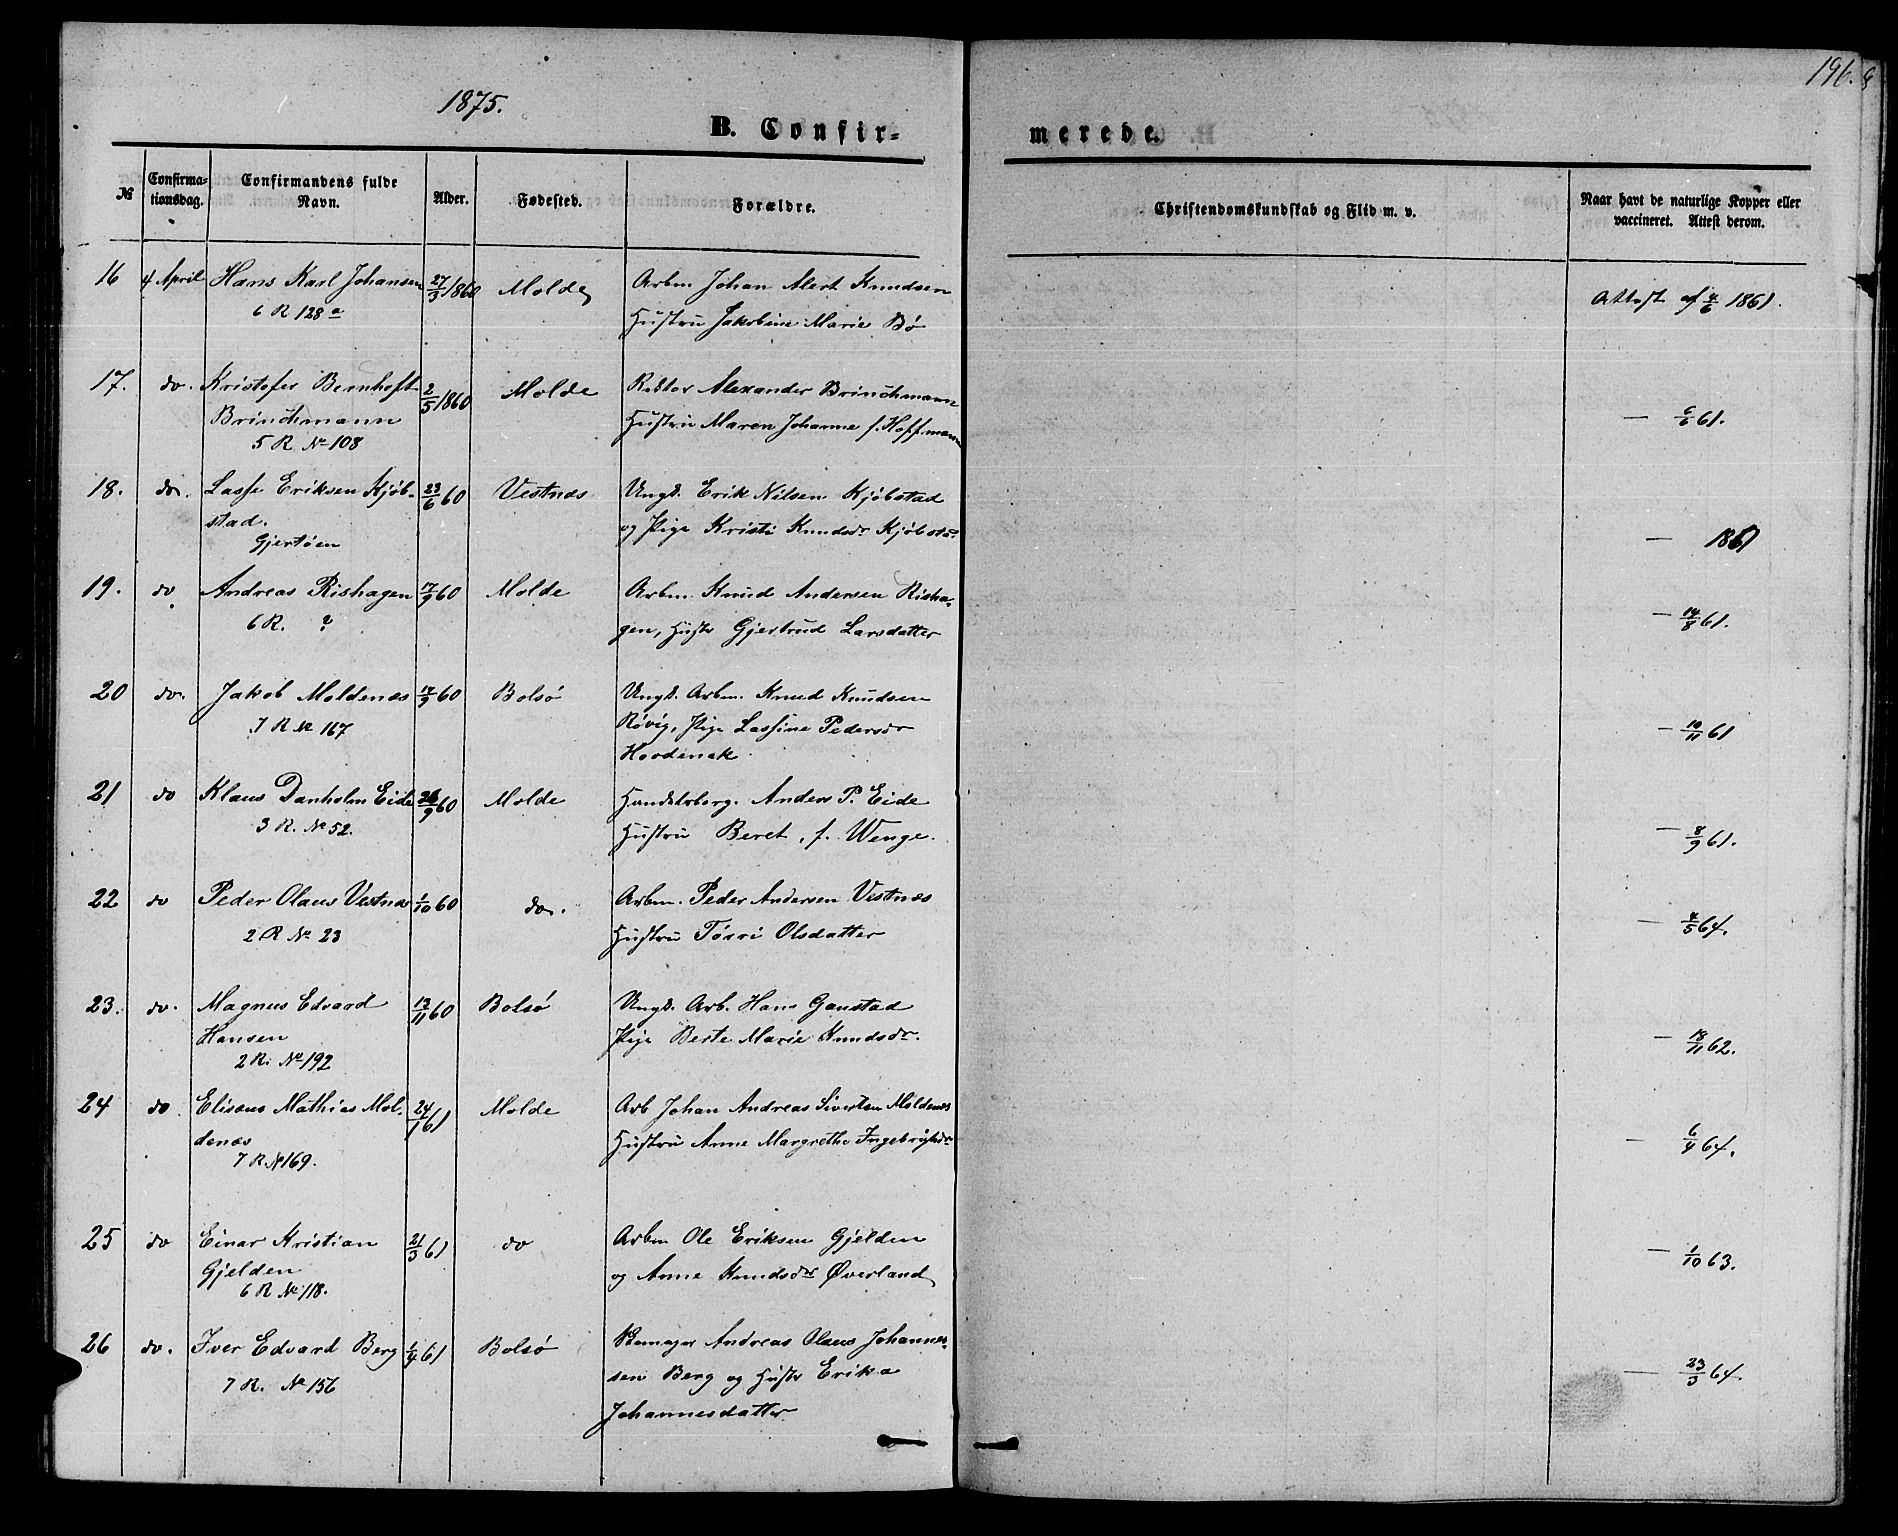 1875.
196.
B. Confir=
merede.
№
Confirma-
tionsdag.
Confirmandens fulde
Navn.
Alder.
Fødested.
Forældre.
Christendomskundskab og Flid m. v.
Naar havt de naturlige Kopper eller
vaccineret. Attest derom.
16 4 April Hans Karl Johansen 27/3/1860 Molde Arbm Johan Alert Knudsen
6 R 128 a Hustru Jakobine Marie Bø
Attest af 4/6 1861.
17. do. Kristofer Bernhoft 2/5/1860 Molde Rektor Alexander Brinchmann
Brinchmann Hustru Maren Johanne f. Hoffmann
5 R № 108
— 6/6 61.
18. do. Lasse Eriksen Kjøb- 23/6 60 Vestnæs Ungk. Erik Nilsen Kjøbstad
stad. og Pige Kristi Knudsdr Kjøbstad
Gjertøen
— 1861
19. do Andreas Rishagen 17/9 60 Molde Arbm. Knud Andersen Risha-
6 R. ? gen, Hustr Gjertrud Larsdatter
— 14/8 61.
20 do. Jakob Moldenæs 17/9 60 Bolsø Ungk. Arbm. Knud Knudsen
7 R № 167 Røvig, Pige Lassine Pedersdr
— 10/11 61
21 do Klaus Danholm Eide 26/9 60 Molde Handelsborg. Anders P. Eide
3 R. № 52. Hustru Beret, f. Wenge.
— 8/9 61.
22 do Peder Olaus Vestnæs 1/10 60 do. Arbm. Peder Andersen Vestnæs
2 R № 23 Hustru Olsdatter
— 4/5 64.
23. do. Magnus Edvard 13/11 60 Bolsø Ungk. Arb. Hans Gaustad
Hansen Pige Berte Marie Knudsdr.
2 R. № 192
— 18/11 62.
24 do Elisæus Mathias Mol- 24/1 61 Molde Arb Johan Andreas Sivertsen Moldenæs
denæs Hustru Anne Margrethe Ingebrigtsdr
7 R. № 169.
— 6/4 64.
25 do Einar Kristian 21/3 61 do Arbm Ole Eriksen Gjelden
Gjelden og Anne Knudsdr Øverland
6 R № 118.
— 1/10 63.
26 do. Iver Edvard Berg 1/4 61 Bolsø Andreas Olaus Johannes-
7 R. № 156 sen Berg og Hustr Erika
Johannesdatter
— 23/3 64.